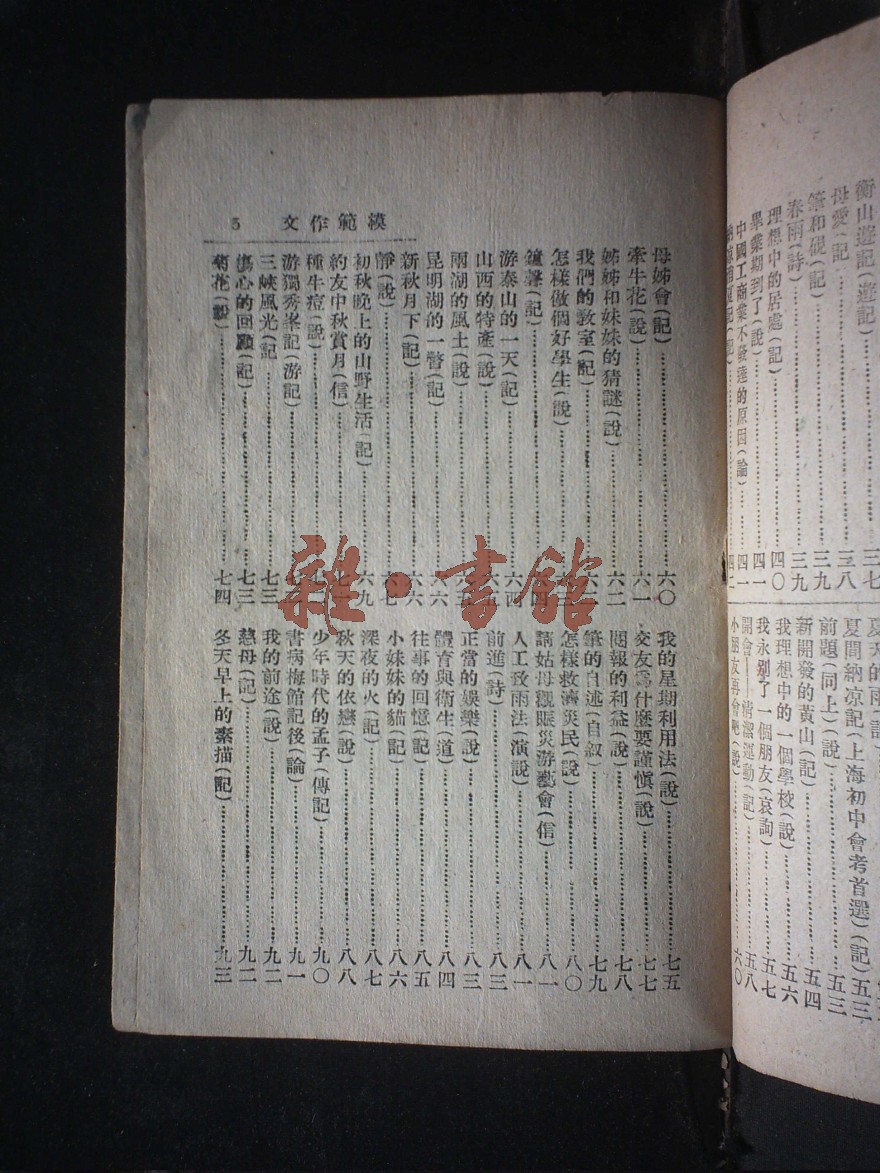 衡山遊記(遊記)
三七
母愛(記)
三八
筆和硯(記)
三九
春雨(詩)
三九
理想中的居處(記)
四〇
畢業期到了(說)
四一
中國工商業不發達的原因(論)
四一
四二
夏天的雨(記)
夏間納凉記(上海初中會考首選)(記)
五三
前題(同上)(說)
五三
新開發的黃山(記)
五四
我理想中的一個學校(說)
五六
我永别了一個朋友(哀詞)
五七
開會——清潔運動(記)
五八
小朋友再會吧(說)
六〇
模範作文 5
母姊會(記)……六〇
牽牛花(說)……六一
姊姊和妹妹的猜謎(說)……六二
我們的教室(記)……六三
怎樣做個好學生(說)
鐘聲(記)……六四
游泰山的一天(記)……六四
山西的特產(說)……六五
兩湖的風土(說)
昆明湖的一瞥(記)……六六
新秋月下(記)……六六
靜(說)……六七
初秋晚上的山野生活(記)……六九
約友中秋賞月(信)
種牛痘(說)
游獨秀峯記(游記)
三峽風光(記)……七三
傷心的回顧(記)……七三
菊花(說)……七四
我的星期利用法(說)……七五
交友爲什麼要謹慎(說)……七七
閱報的利益(說)……七八
筆的自述(自叙)……七九
怎樣救濟災民(說)……八〇
請姑母觀賑災游藝會(信)……八一
人工致雨法(演說)……八一
前進(詩)……八三
正當的娛樂(說)……八三
體育與衛生(道)……八四
往事的回憶(記)……八五
小妹妹的貓(記)……八六
深夜的火(記)……八七
秋天的依戀(說)……八八
少年時代的孟子(傳記)……九〇
書病梅館記後(論)……九一
我的前途(說)……九二
慈母(記)……九二
冬天早上的素描(記)……九三
雜·書館